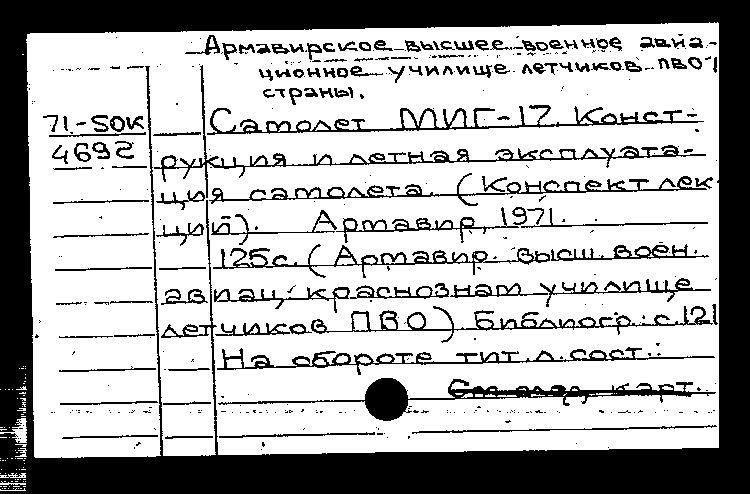 Армавирское высшее военное авиа-
ционное училище летчиков ПВО
страны.
71-50К Самолет МИГ-17. Конст-
4692 рукция и летная эксплуата-
ция самолета. (Конспект лек-
ций). Армавир, 1971.
125с. (Армавир. высш. воен.
авиац. краснознам училище
летчиков ПВО) Библиогр: с.121
На обороте тит. л. сост.:
карт.